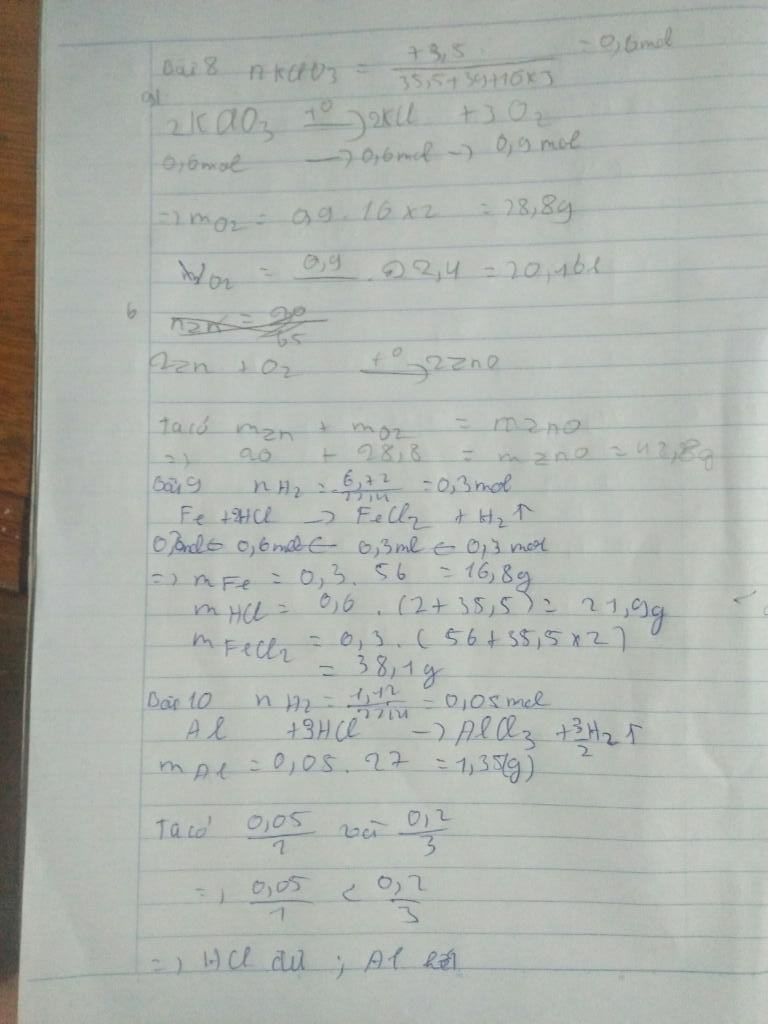 Bài 8 nKClO3 = +3,5 / 35,5+39+16x3 = 0,6mol
a)
2KClO3 t° → 2KCl + 3O2
0,6mol → 0,6mol → 0,9mol
=> mO2 = 0,9 . 16x2 = 28,8g
VO2 = 0,9 . 22,4 = 20,16l
b nZn = 20/65
2Zn + O2 t° → 2ZnO
Ta có mZn + mO2 = mZnO
=> 20 + 28,8 = mZnO = 48,8g
Bài 9 nH2 = 6,72/22,4 = 0,3mol
Fe + 2HCl → FeCl2 + H2↑
0,3mol ← 0,6mol ← 0,3ml ← 0,3mol
=> mFe = 0,3 . 56 = 16,8g
mHCl = 0,6 . (2+35,5) = 21,9g
mFeCl2 = 0,3 . (56+35,5x2)
= 38,1g
Bài 10 nH2 = 1,12/22,4 = 0,05mol
Al + 3HCl → AlCl3 + 3/2H2↑
mAl = 0,05 . 27 = 1,35(g)
Ta có 0,05/1 và 0,2/3
=> 0,05/1 < 0,2/3
=> HCl dư ; Al hết